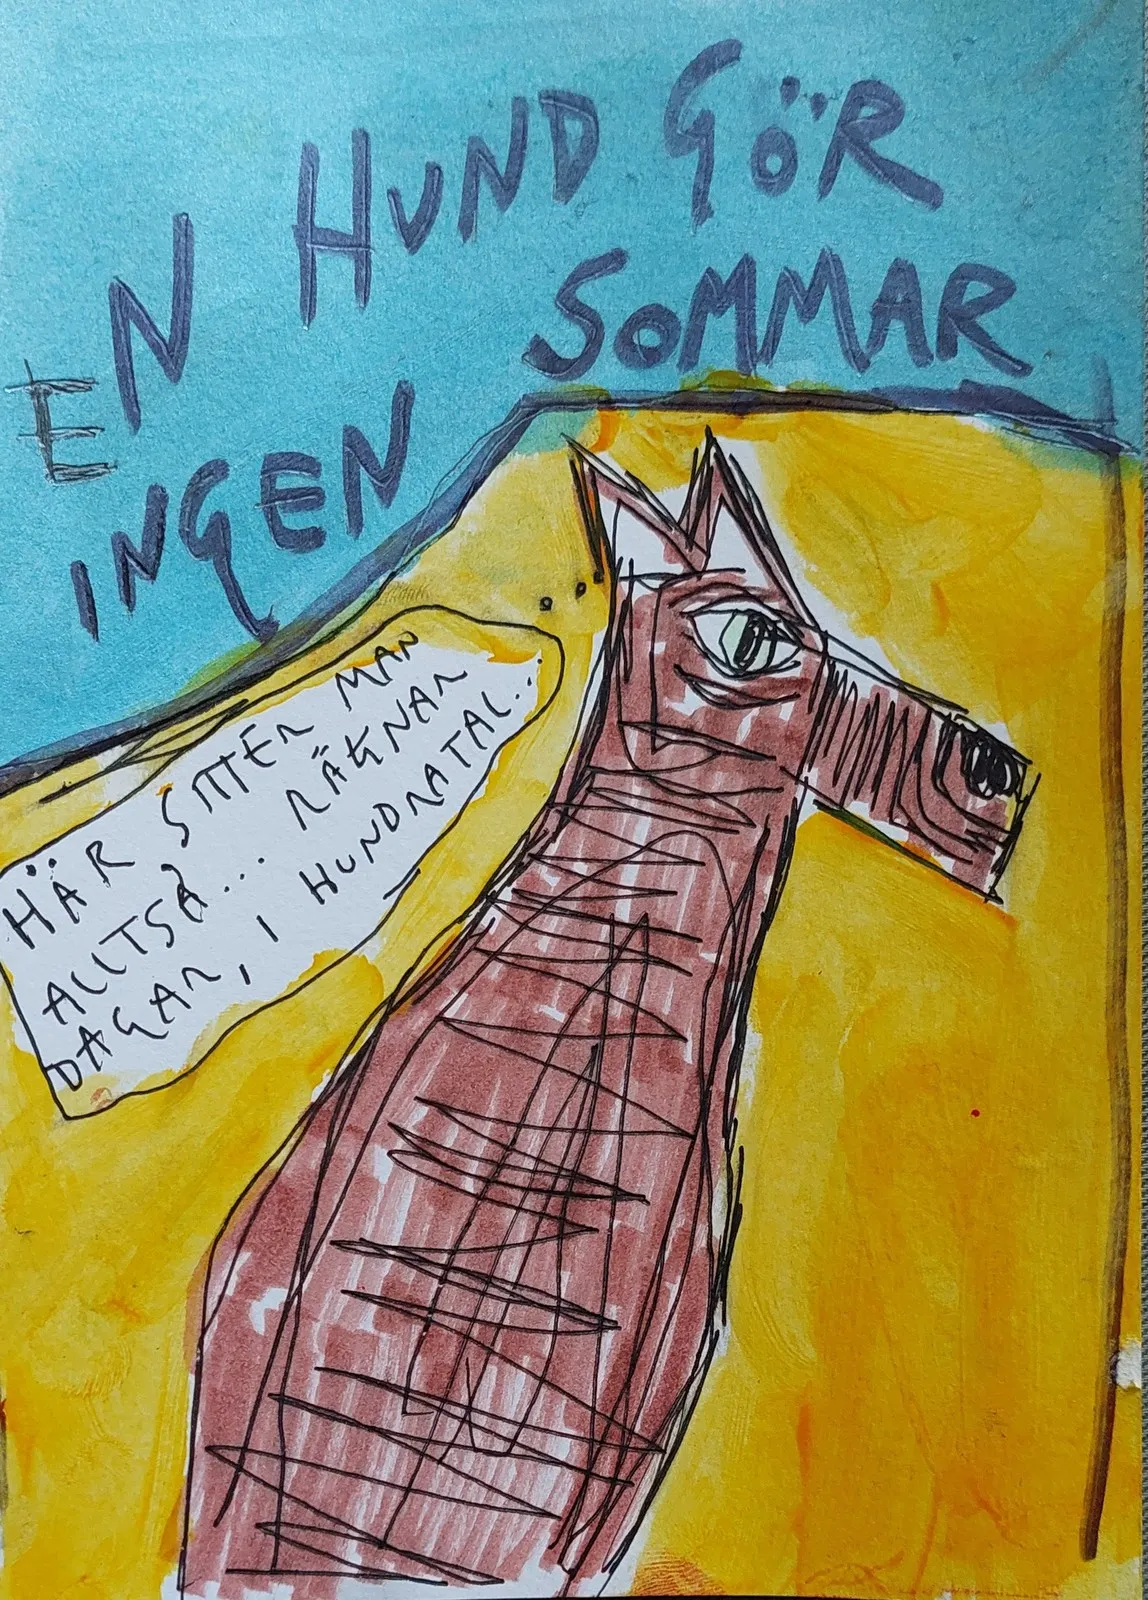 EN HUND GÖR
INGEN SOMMAR
HÄR SITTER MAN
ALLTSÅ... RÄKNAR
DAGAR, I HUNDRATAL...